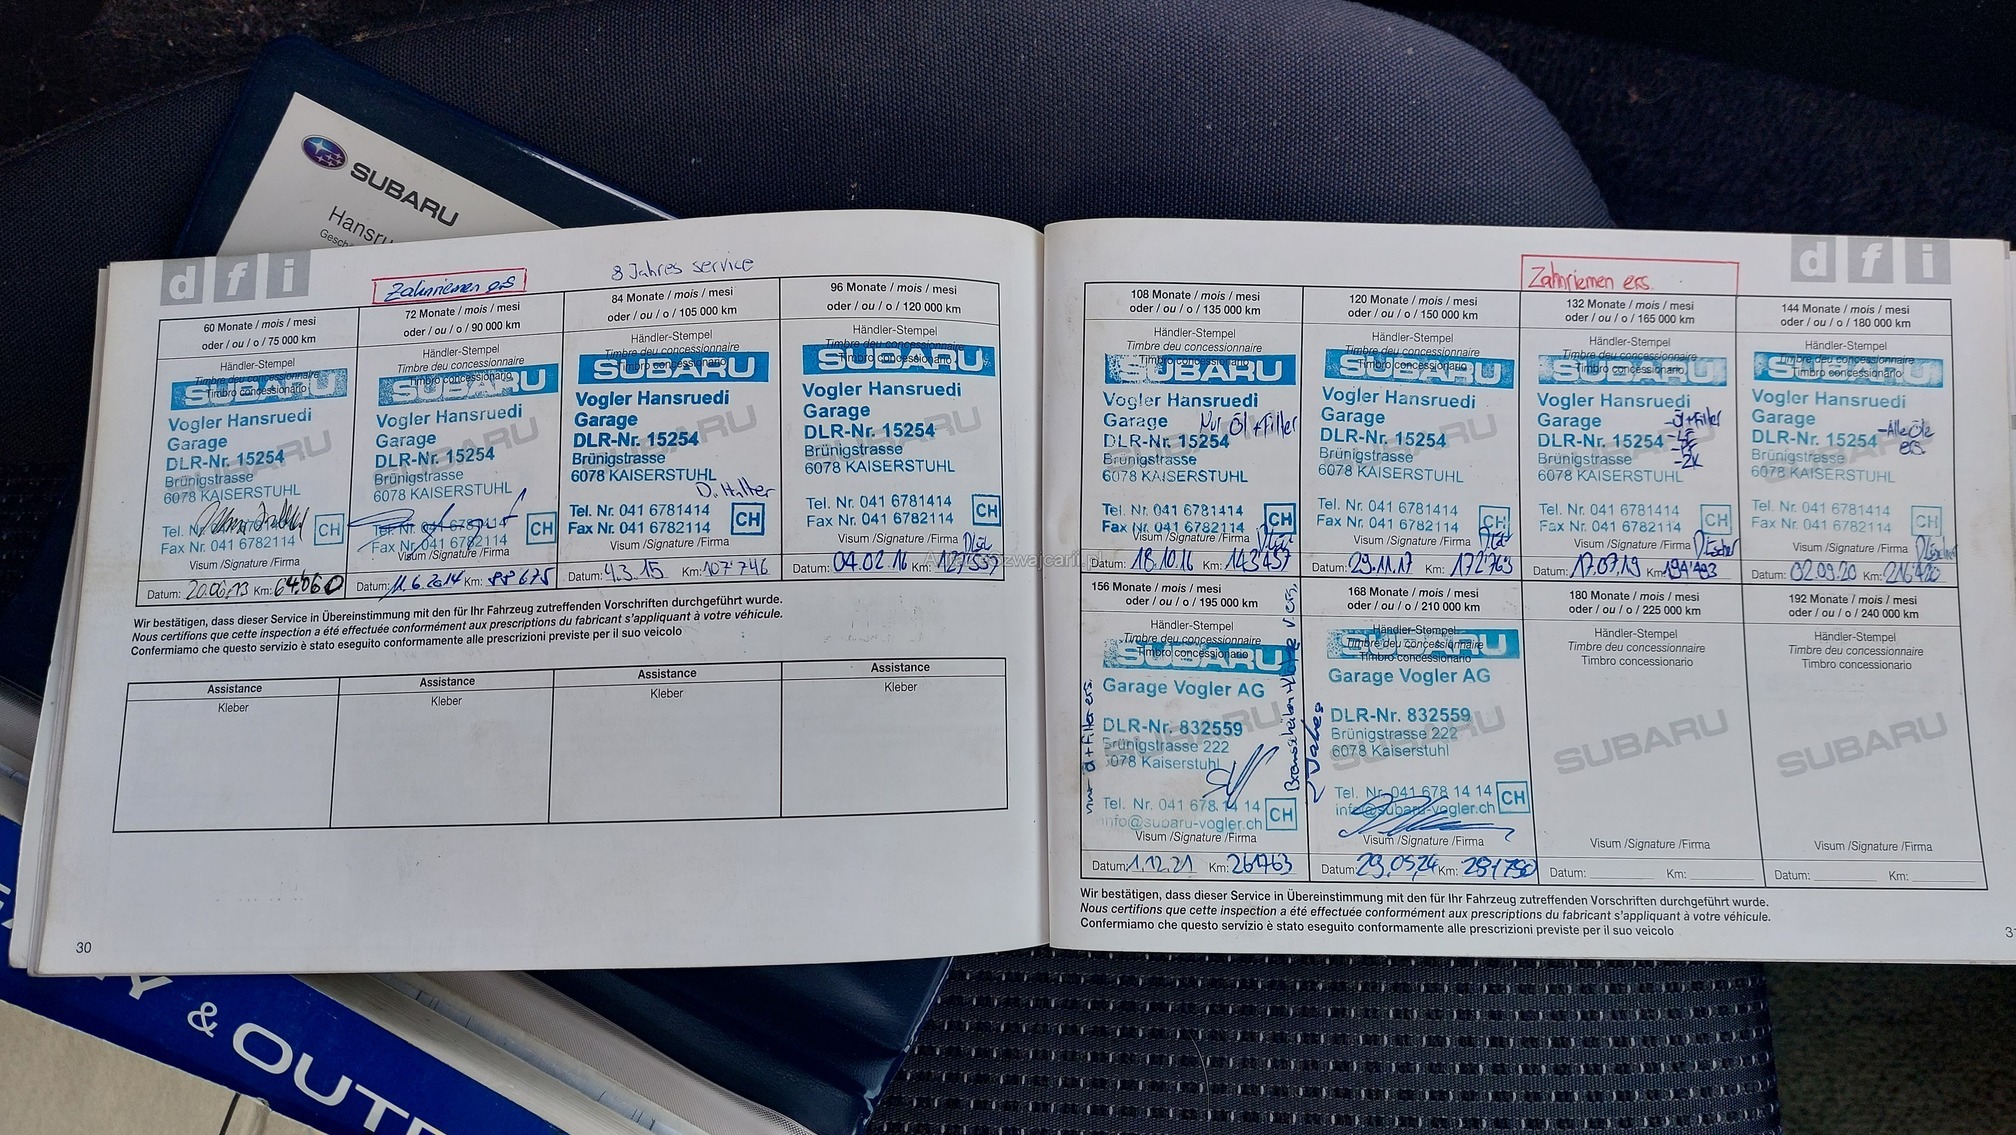 SUBARU
Hansru
Gesch
dfi
Zahnriemen ers
8 Jahres service
60 Monate / mois / mesi
oder / ou / o / 75 000 km
Händler-Stempel
Timbre deu concessionnaire
Timbro concessionario
SUBARU
Vogler Hansruedi
Garage
DLR-Nr. 15254
Brünigstrasse
6078 KAISERSTUHL
Tel. Nr. 041 6781414
Fax Nr. 041 6782114
CH
Visum /Signature /Firma
Datum: 20.06.13 Km: 64'060
72 Monate / mois / mesi
oder / ou / o / 90 000 km
Händler-Stempel
Timbre deu concessionnaire
Timbro concessionario
SUBARU
Vogler Hansruedi
Garage
DLR-Nr. 15254
Brünigstrasse
6078 KAISERSTUHL
Tel. Nr. 041 6781414
Fax Nr. 041 6782114
CH
Visum /Signature /Firma
Datum: 11.6.2014 Km: 88'675
84 Monate / mois / mesi
oder / ou / o / 105 000 km
Händler-Stempel
Timbre deu concessionnaire
Timbro concessionario
SUBARU
Vogler Hansruedi
Garage
DLR-Nr. 15254
Brünigstrasse
6078 KAISERSTUHL
D. Halter
Tel. Nr. 041 6781414
Fax Nr. 041 6782114
CH
Visum /Signature /Firma
Datum: 4.3.15 Km: 107'746
96 Monate / mois / mesi
oder / ou / o / 120 000 km
Händler-Stempel
Timbre deu concessionnaire
Timbro concessionario
SUBARU
Vogler Hansruedi
Garage
DLR-Nr. 15254
Brünigstrasse
6078 KAISERSTUHL
Tel. Nr. 041 6781414
Fax Nr. 041 6782114
CH
Visum /Signature /Firma
Datum: 04.02.16 Km:
Wir bestätigen, dass dieser Service in Übereinstimmung mit den für Ihr Fahrzeug zutreffenden Vorschriften durchgeführt wurde.
Nous certifions que cette inspection a été effectuée conformément aux prescriptions du fabricant s'appliquant à votre véhicule.
Confermiamo che questo servizio è stato eseguito conformamente alle prescrizioni previste per il suo veicolo
Assistance
Kleber
Assistance
Kleber
Assistance
Kleber
Assistance
Kleber
30
dfi
Zahnriemen ers.
108 Monate / mois / mesi
oder / ou / o / 135 000 km
Händler-Stempel
Timbre deu concessionnaire
Timbro concessionario
SUBARU
Vogler Hansruedi
Garage
Nur Öl + Filter
DLR-Nr. 15254
Brünigstrasse
6078 KAISERSTUHL
Tel. Nr. 041 6781414
Fax Nr. 041 6782114
CH
Visum /Signature /Firma
Datum: 18.10.16 Km: 143'457
120 Monate / mois / mesi
oder / ou / o / 150 000 km
Händler-Stempel
Timbre deu concessionnaire
Timbro concessionario
SUBARU
Vogler Hansruedi
Garage
DLR-Nr. 15254
Brünigstrasse
6078 KAISERSTUHL
Tel. Nr. 041 6781414
Fax Nr. 041 6782114
CH
Visum /Signature /Firma
Datum: 29.11.17 Km: 172'763
132 Monate / mois / mesi
oder / ou / o / 165 000 km
Händler-Stempel
Timbre deu concessionnaire
Timbro concessionario
SUBARU
Vogler Hansruedi
Garage
-Öl+Filter
DLR-Nr. 15254
Brünigstrasse
6078 KAISERSTUHL
Tel. Nr. 041 6781414
Fax Nr. 041 6782114
CH
Visum /Signature /Firma
Datum: 17.07.19 Km: 194'493
144 Monate / mois / mesi
oder / ou / o / 180 000 km
Händler-Stempel
Timbre deu concessionnaire
Timbro concessionario
SUBARU
Vogler Hansruedi
Garage
DLR-Nr. 15254
-Alle Öle
ers.
Brünigstrasse
6078 KAISERSTUHL
Tel. Nr. 041 6781414
Fax Nr. 041 6782114
CH
Visum /Signature /Firma
Datum: 02.09.20 Km:
156 Monate / mois / mesi
oder / ou / o / 195 000 km
Händler-Stempel
Timbre deu concessionnaire
Timbro concessionario
SUBARU
Garage Vogler AG
DLR-Nr. 832559
Brünigstrasse 222
6078 Kaiserstuhl
Tel. Nr. 041 678 14 14
info@subaru-vogler.ch
CH
Visum /Signature /Firma
Datum: 1.12.21 Km: 261763
168 Monate / mois / mesi
oder / ou / o / 210 000 km
Händler-Stempel
Timbre deu concessionnaire
Timbro concessionario
SUBARU
Garage Vogler AG
DLR-Nr. 832559
Brünigstrasse 222
6078 Kaiserstuhl
Tel. Nr. 041 678 14 14
info@subaru-vogler.ch
CH
Visum /Signature /Firma
Datum: 29.05.24 Km: 291790
180 Monate / mois / mesi
oder / ou / o / 225 000 km
Händler-Stempel
Timbre deu concessionnaire
Timbro concessionario
SUBARU
Visum /Signature /Firma
Datum: Km:
192 Monate / mois / mesi
oder / ou / o / 240 000 km
Händler-Stempel
Timbre deu concessionnaire
Timbro concessionario
SUBARU
Visum /Signature /Firma
Datum: Km:
Wir bestätigen, dass dieser Service in Übereinstimmung mit den für Ihr Fahrzeug zutreffenden Vorschriften durchgeführt wurde.
Nous certifions que cette inspection a été effectuée conformément aux prescriptions du fabricant s'appliquant à votre véhicule.
Confermiamo che questo servizio è stato eseguito conformamente alle prescrizioni previste per il suo veicolo
& OUT